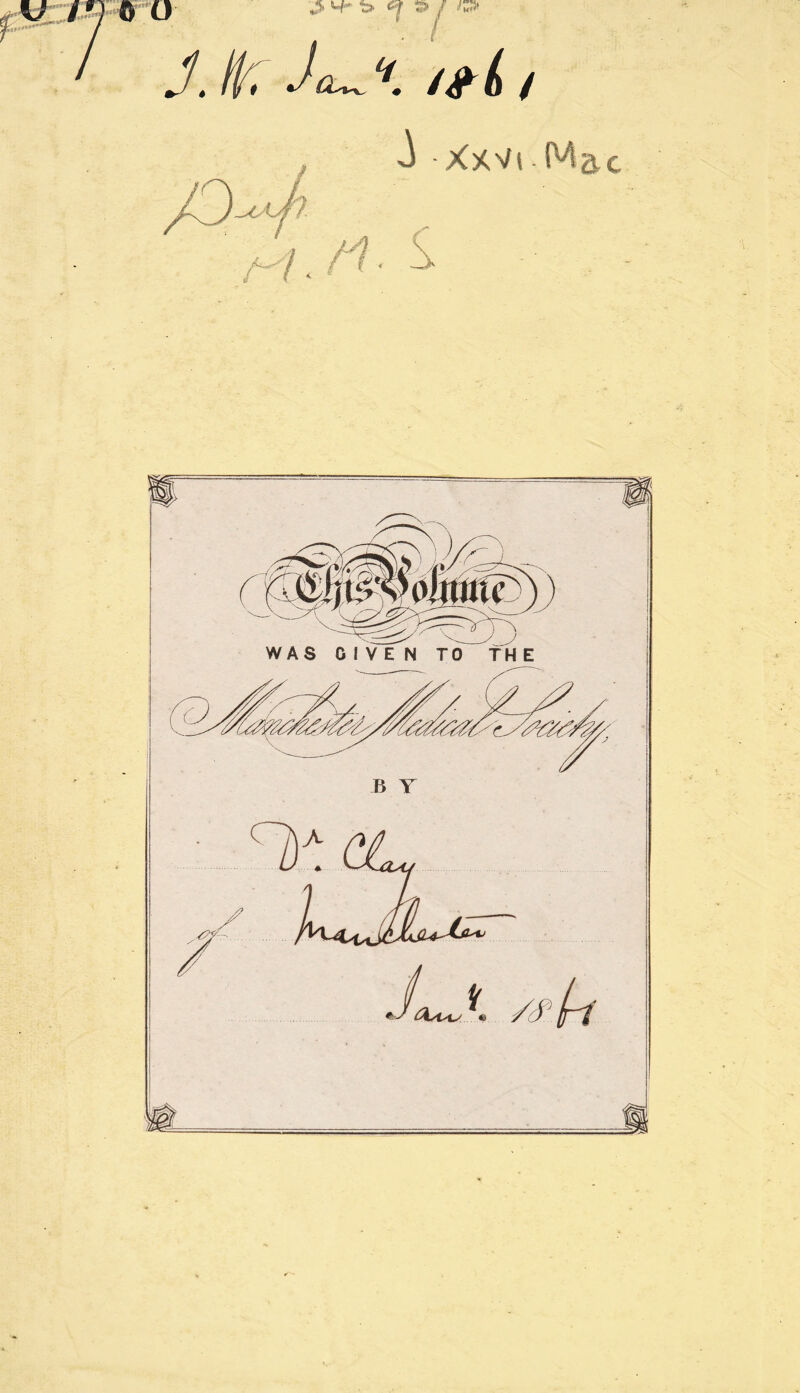 J. W. Jan^y. 1861
J - XXVI. Mac
Dup
M. M. S
This Volume
WAS GIVEN TO THE
Manchester Medical Society,
BY
D^r. Clay
of Manchester
Jan^y. 1861